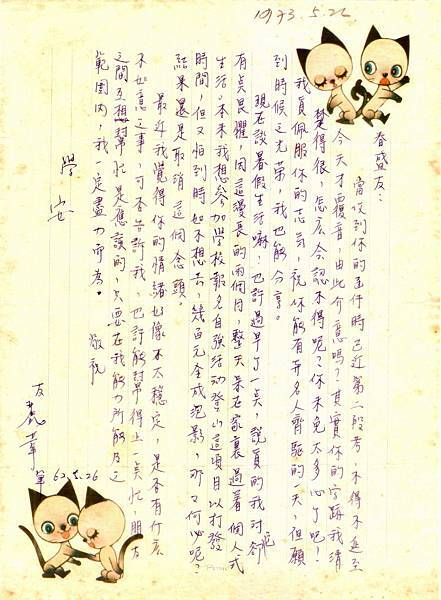 1973.5.22
春盛友:
當收到你的孟件時已近第二段考,不得不延至
今天才覆音,由此介意嗎?其實你的字跡我清
楚得很,怎麼会認不得呢?你未免太多心了吧!
我頁佩服你的志氣,祝你能有弄名人齊駈的一天,但願
到時候之光荣,我也能分享。
現在談暑假生活嘛!也許過早了一点,說真的我对它
有点畏懼,因這漫長的兩個月,整天呆在家裏過着個人式
生活。本来我想參加學校報名自強活动登山這項目以打發
時間,但又怕到時如不想去,幾百元全成泡影,那又何必呢?
結果還是取消這個念頭。
最近我覺得你的情緒好像不太穩定,是否有什麼
不如意之事,可不告訴我,也許能幫得上一点忙,朋友
之間互相幫忙是應該的,只要在我能力所能及之
範囲內,我一定盡力而為。
敬祝
學安
友
麗華
筆 62.5.26